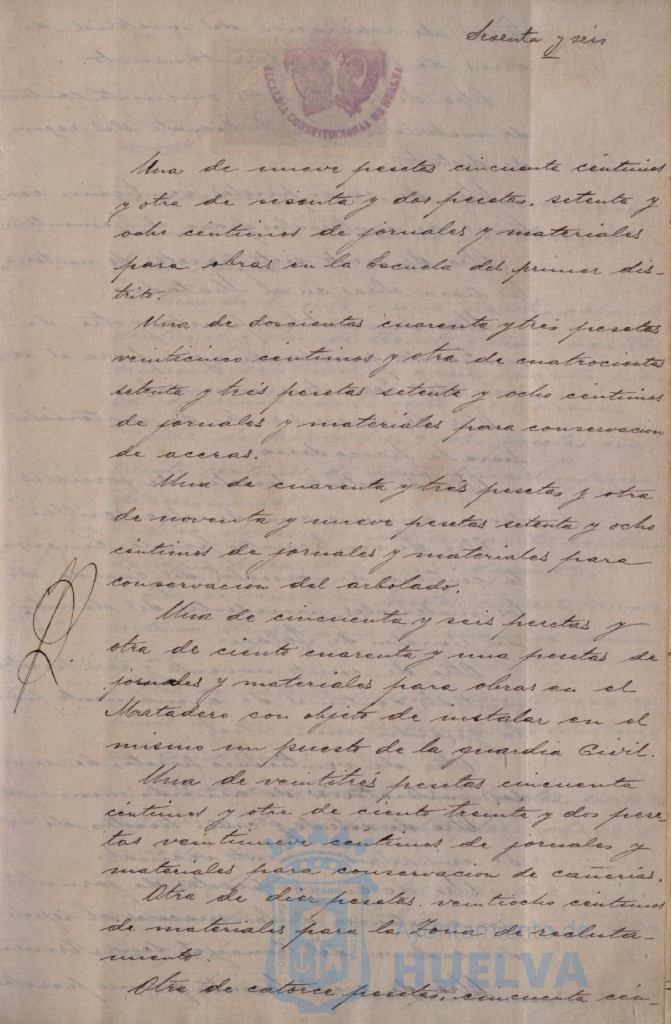 Sesenta y seis
ALCALDIA CONSTITUCIONAL DE HUELVA
Una de nueve pesetas cincuenta céntimos
y otra de sesenta y dos pesetas, setenta y
ocho céntimos de jornales y materiales
para obras en la Escuela del primer dis-
trito.
Una de doscientas cuarenta y tres pesetas
veinticinco céntimos y otra de cuatrocientas
setenta y tres pesetas setenta y ocho céntimos
de jornales y materiales para conservacion
de aceras.
Una de cuarenta y tres pesetas y otra
de noventa y nueve pesetas setenta y ocho
céntimos de jornales y materiales para
conservacion del arbolado.
Una de cincuenta y seis pesetas y
otra de ciento cuarenta y una pesetas de
jornales y materiales para obras en el
Matadero con objeto de instalar en el
mismo un puesto de la guardia Civil.
Una de veintitrés pesetas cincuenta
céntimos y otra de ciento treinta y dos pese-
tas veintinueve céntimos de jornales y
materiales para conservacion de cañerías.
Otra de diez pesetas veintiocho céntimos
de materiales para la Zona de recluta-
miento.
Otra de catorce pesetas, cincuenta cén-
Ayuntamiento de
HUELVA